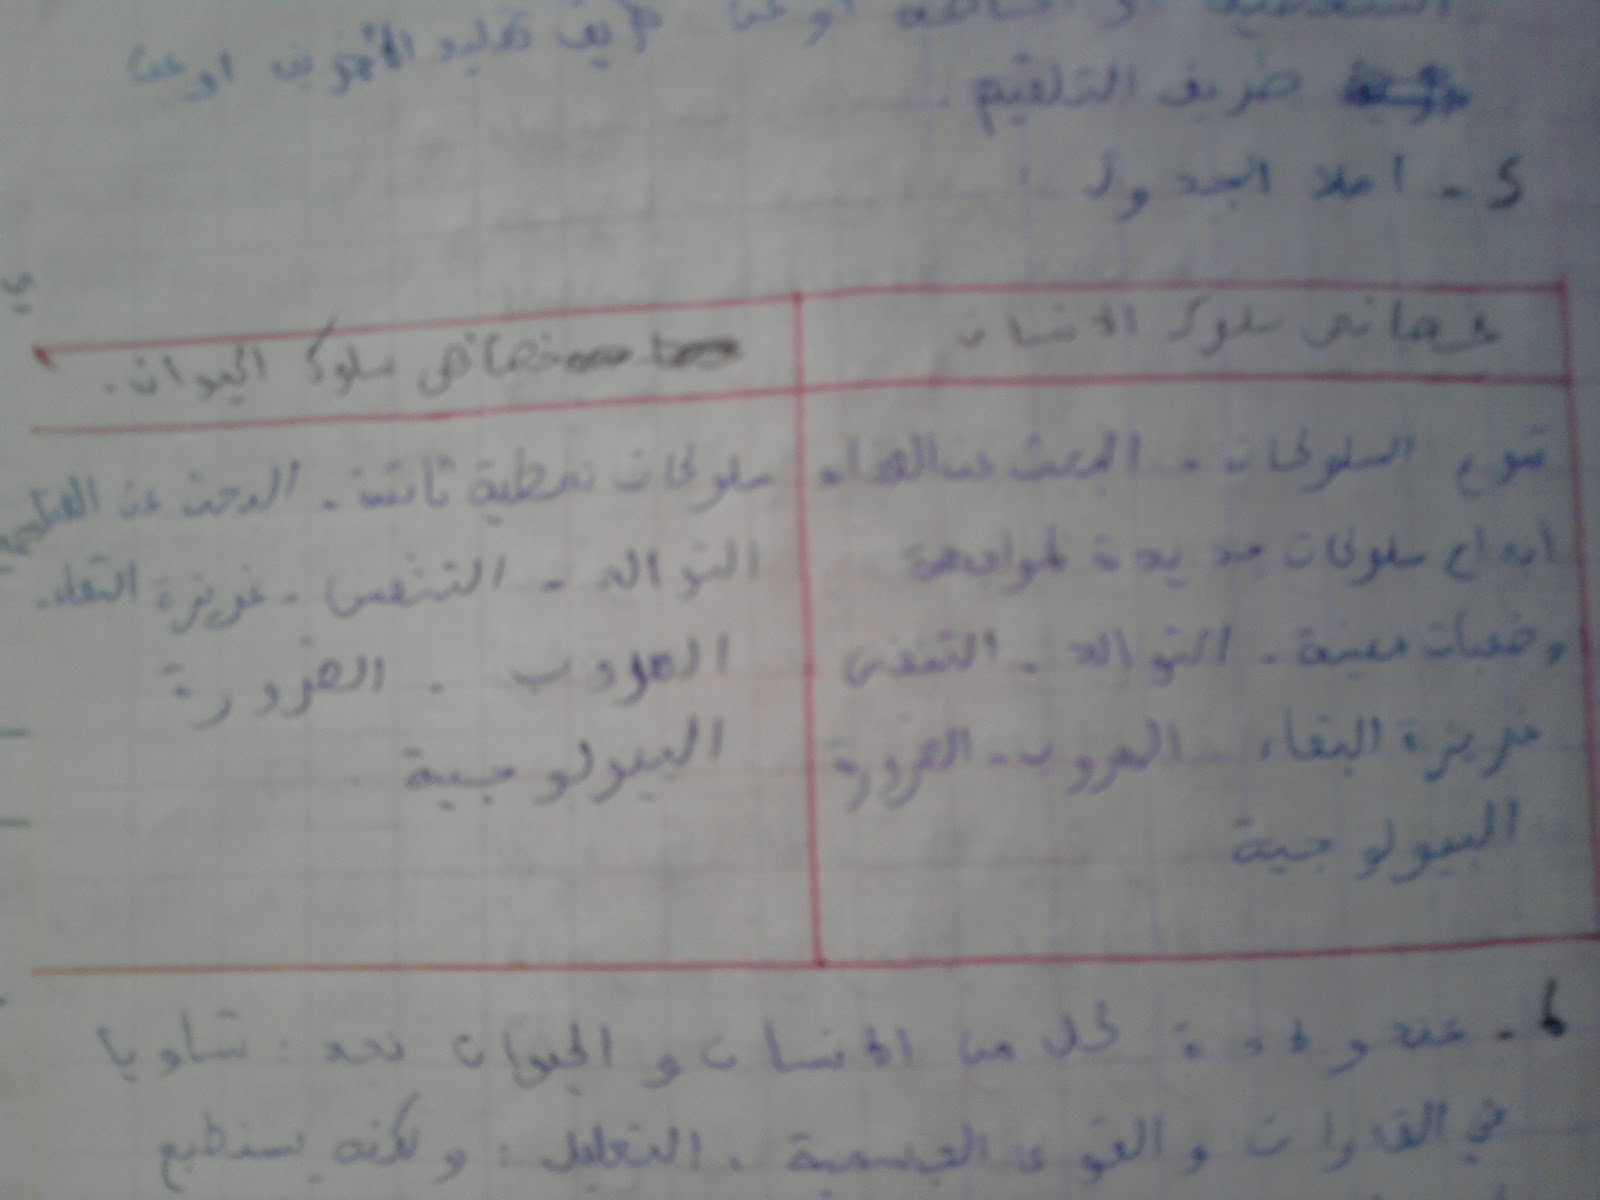 أو عن طريق تقليد الآخرين أو عن
طريق التلقيم.
5 - املا الجدول :
خصائص سلوك الانسان
خصائص سلوك الحيوان.
تنوع السلوكات - البحث عن الغذاء
ابداع سلوكات جديدة لمواجهة
وضعيات معينة - التوالد - التنفس
غريزة البقاء - الهروب - الضرورة
البيولوجية
سلوكات نمطية ثابتة - البحث عن الغذاء
التوالد - التنفس - غريزة البقاء -
الهروب - الضرورة
البيولوجية.
6 - عند ولادة كل من الانسان و الحيوان نجد تساويا
في القدرات و القوى الجسمية. التعليل : ولكنه يستطيع